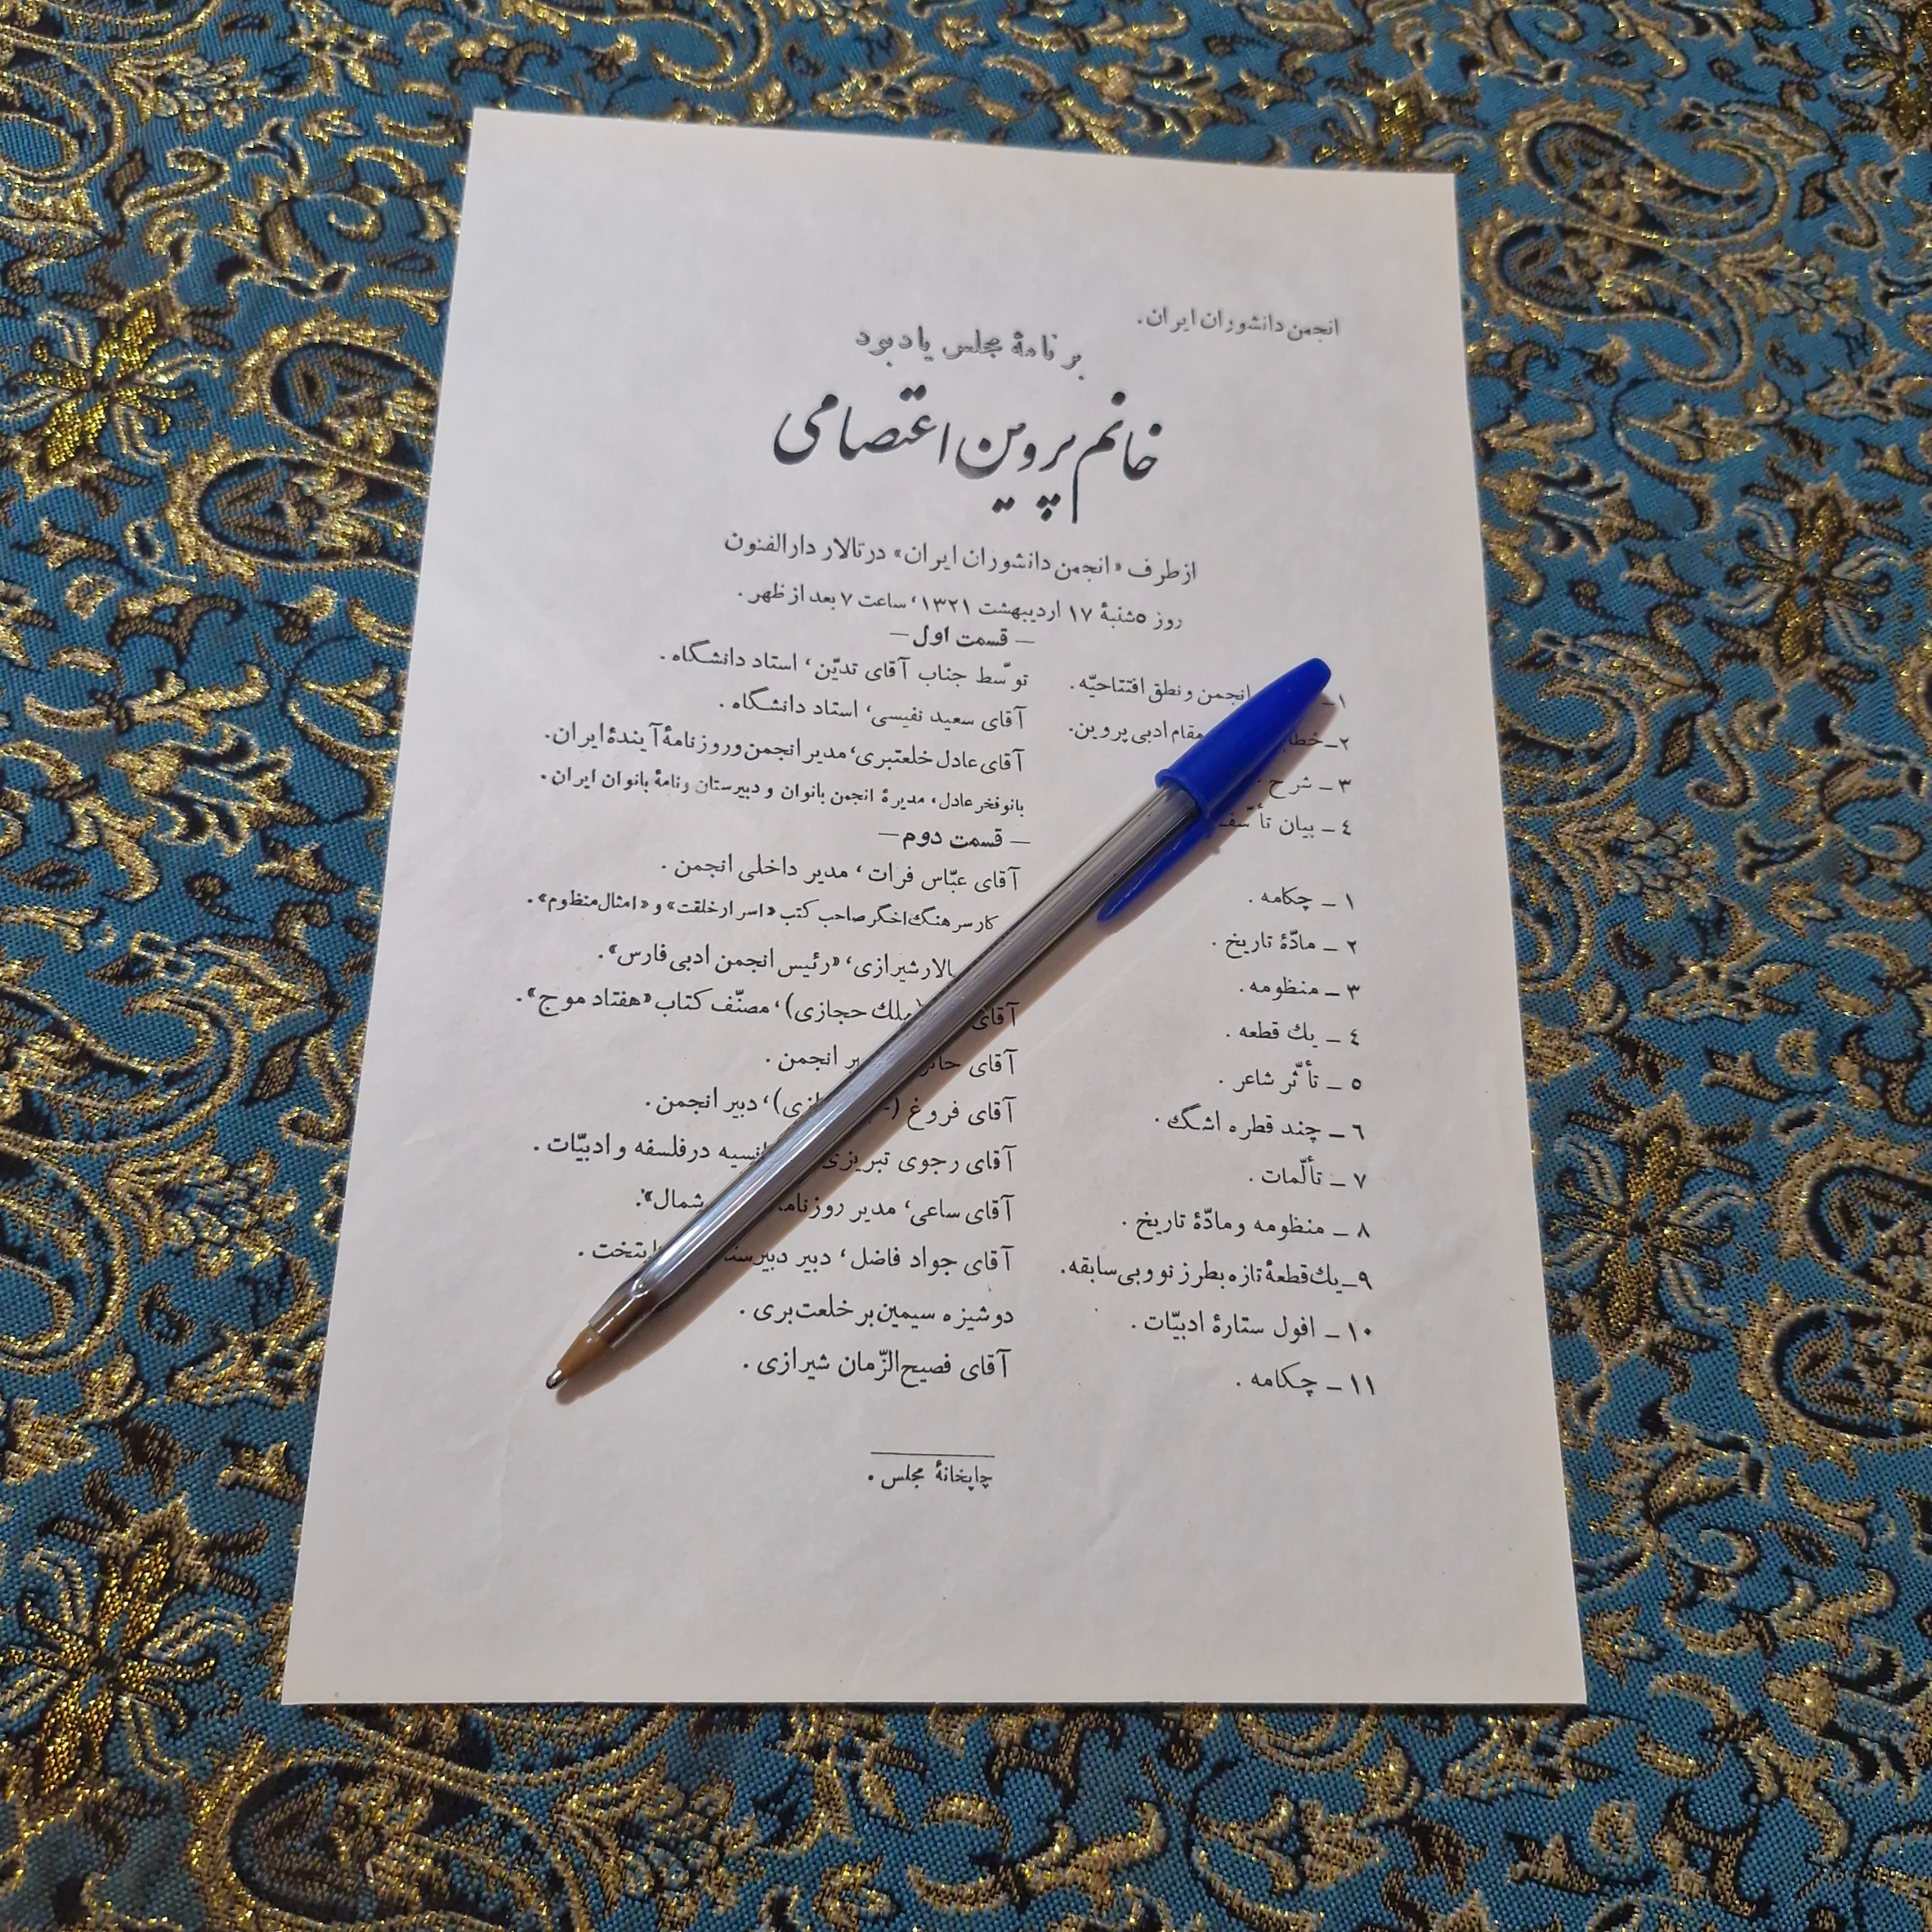 انجمن دانشوران ایران.
برنامهٔ مجلس یادبود
خانم پروین اعتصامی
از طرف «انجمن دانشوران ایران» در تالار دارالفنون
روز ٥شنبهٔ ١٧ اردیبهشت ١٣٢١، ساعت ٧ بعد از ظهر.
— قسمت اول —
١ـ انجمن و نطق افتتاحیّه. توسّط جناب آقای تدیّن، استاد دانشگاه.
٢ـ مقام ادبی پروین. آقای سعید نفیسی، استاد دانشگاه.
٣ ـ شرح آقای عادل خلعتبری، مدیر انجمن و روزنامهٔ آیندهٔ ایران.
٤ ـ بیان تأسّف بانو فخر عادل، مدیرهٔ انجمن بانوان و دبیرستان ونامهٔ بانوان ایران.
— قسمت دوم —
١ ـ چکامه. آقای عبّاس فرات، مدیر داخلی انجمن.
٢ ـ مادّهٔ تاریخ. سرهنگ اخگر صاحب کتب «اسرار خلقت» و «امثال منظوم».
٣ ـ منظومه. شیرازی، «رئیس انجمن ادبی فارس».
٤ ـ یك قطعه. آقای حجازی)، مصنّف کتاب «هفتاد موج».
٥ ـ تأثّر شاعر. آقای انجمن.
٦ ـ چند قطره اشگ. آقای فروغ دبیر انجمن.
٧ ـ تألّمات. آقای رجوی تبریزی در فلسفه و ادبیّات.
٨ ـ منظومه و مادّهٔ تاریخ. آقای ساعی، مدیر روزنامه شمال».
٩ـ یك قطعهٔ تازه بطرز نو و بی سابقه. آقای جواد فاضل، دبیر
١٠ ـ افول ستارهٔ ادبیّات. دوشیزه سیمین بر خلعت بری.
١١ ـ چکامه. آقای فصیح الزّمان شیرازی.
چاپخانهٔ مجلس.